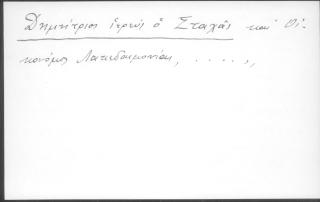 Δημήτριος ἱερεύς ὁ Σταχᾶς καί Οἰ-
κονόμος Λακεδαιμονίας, . . . . ,,